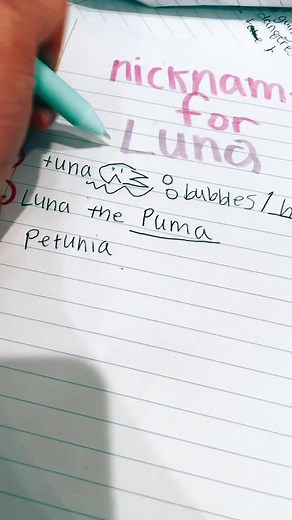 nicknam
for
Luna
tuna bubbles/b
Luna the Puma
Petunia